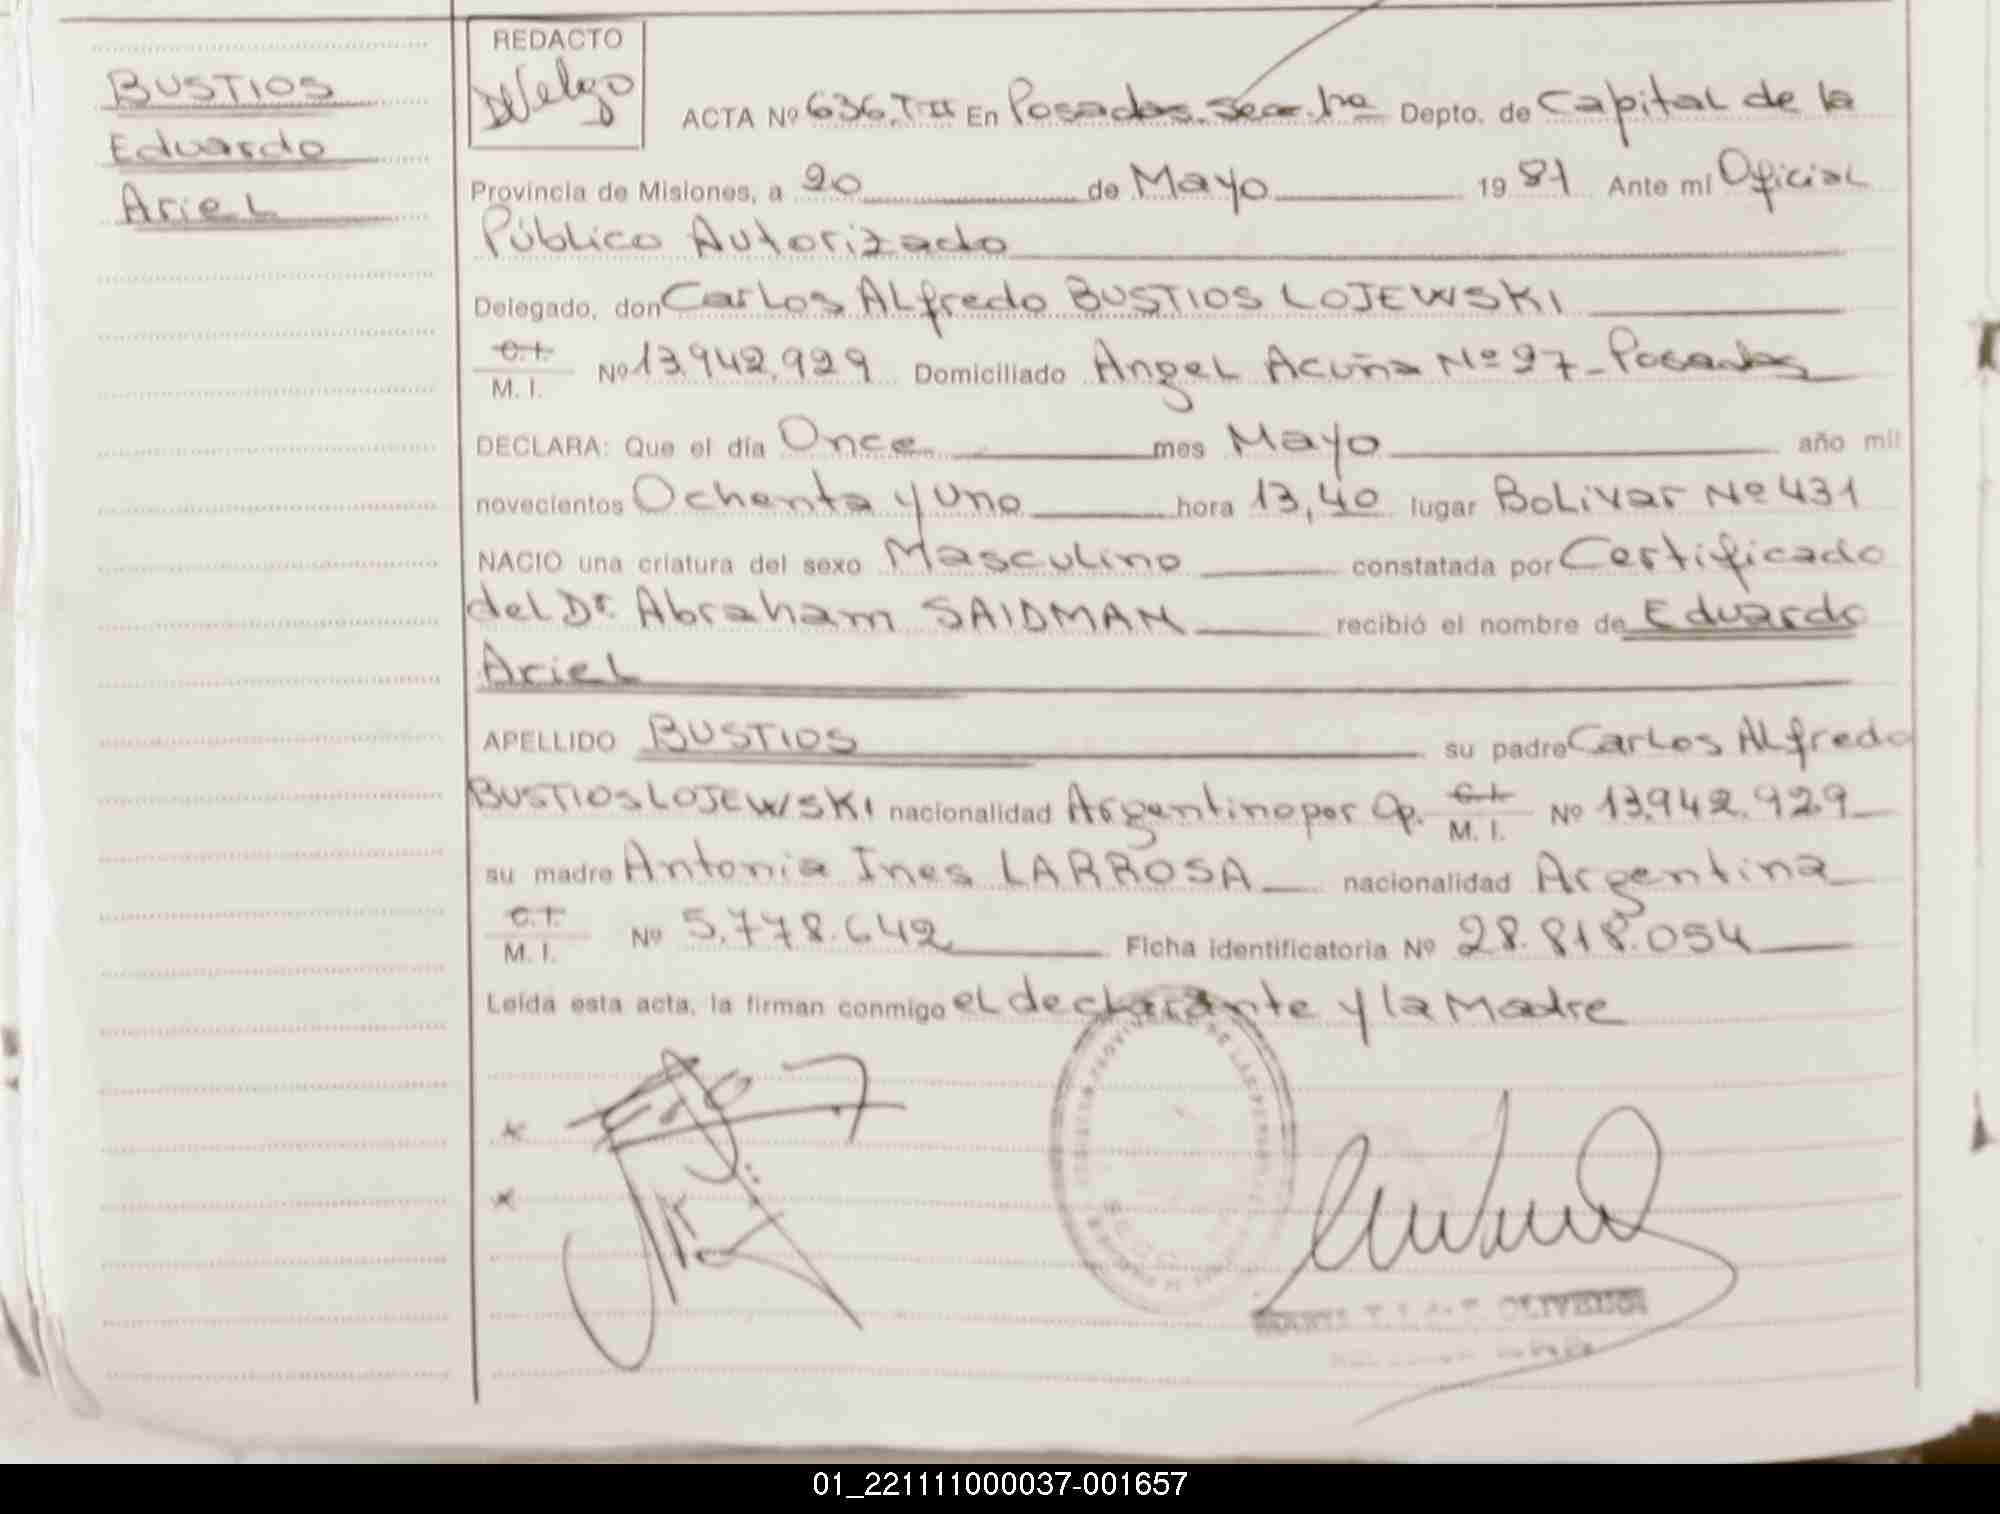 BUSTIOS
Eduardo
Ariel
REDACTO
ACTA Nº 636. T II En Posadas. Secc. 1ra Depto. de Capital de la
Provincia de Misiones, a 20 de Mayo 1981 Ante mí Oficial
Público Autorizado
Delegado, don Carlos Alfredo BUSTIOS LOJEWSKI
C.I.
M. I. Nº 13.942.929 Domiciliado Angel Acuña Nº 27 - Posadas
DECLARA: Que el día Once mes Mayo año mil
novecientos Ochenta y Uno hora 13,40 lugar Bolivar Nº 431
NACIO una criatura del sexo Masculino constatada por Certificado
del Dr. Abraham SAIDMAN recibió el nombre de Eduardo
Ariel
APELLIDO BUSTIOS su padre Carlos Alfredo
BUSTIOS LOJEWSKI nacionalidad Argentino por Op. C.I.
M. I. Nº 13.942.929
su madre Antonia Ines LARROSA nacionalidad Argentina
C.I.
M. I. Nº 5.778.642 Ficha identificatoria Nº 28.818.054
Leída esta acta, la firman conmigo el declarante y la Madre
01_221111000037-001657